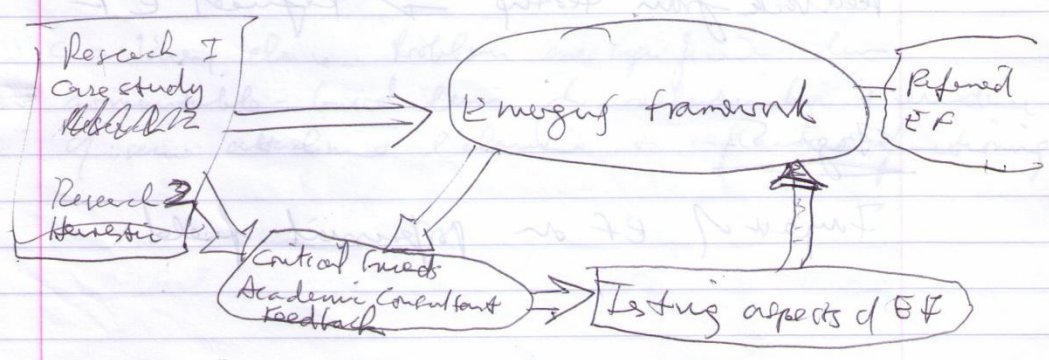 feedback from testing → Refined EF
Research I
Case study
Research 2
Heuristic
Emerging framework
Refined
EF
Critical friends
Academic, Consultant
Feedback
Testing aspects of EF